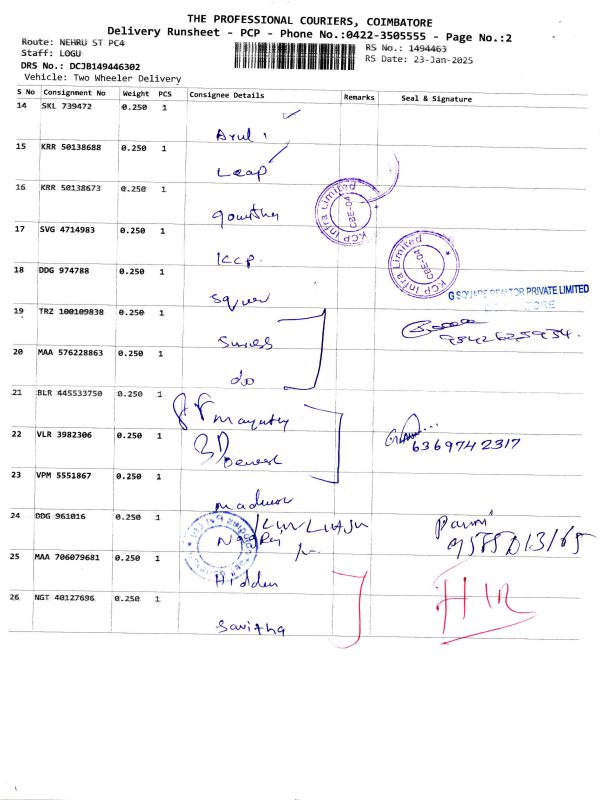 THE PROFESSIONAL COURIERS, COIMBATORE
Delivery Runsheet - PCP - Phone No.:0422-3505555 - Page No.:2
Route: NEHRU ST PC4
RS No.: 1494463
Staff: LOGU
RS Date: 23-Jan-2025
DRS No.: DCJB149446302
Vehicle: Two Wheeler Delivery
S No Consignment No Weight PCS Consignee Details Remarks Seal & Signature
14 SKL 739472 0.250 1
Arul
15 KRR 50138688 0.250 1
Leap
16 KRR 50138673 0.250 1
gowtham
KCP Infra Limited
CBE-04
17 SVG 4714983 0.250 1
KCP
KCP Infra Limited
CBE-04
18 DDG 974788 0.250 1
Squer
G SQUARE REALTOR PRIVATE LIMITED
19 TRZ 100109838 0.250 1
Suress
20 MAA 576228863 0.250 1
do
21 BLR 445533750 0.250 1
22 VLR 3982306 0.250 1
6369742317
23 VPM 5551867 0.250 1
24 DDG 961016 0.250 1
25 MAA 706079681 0.250 1
Hidden
26 NGT 40127696 0.250 1
Savitha